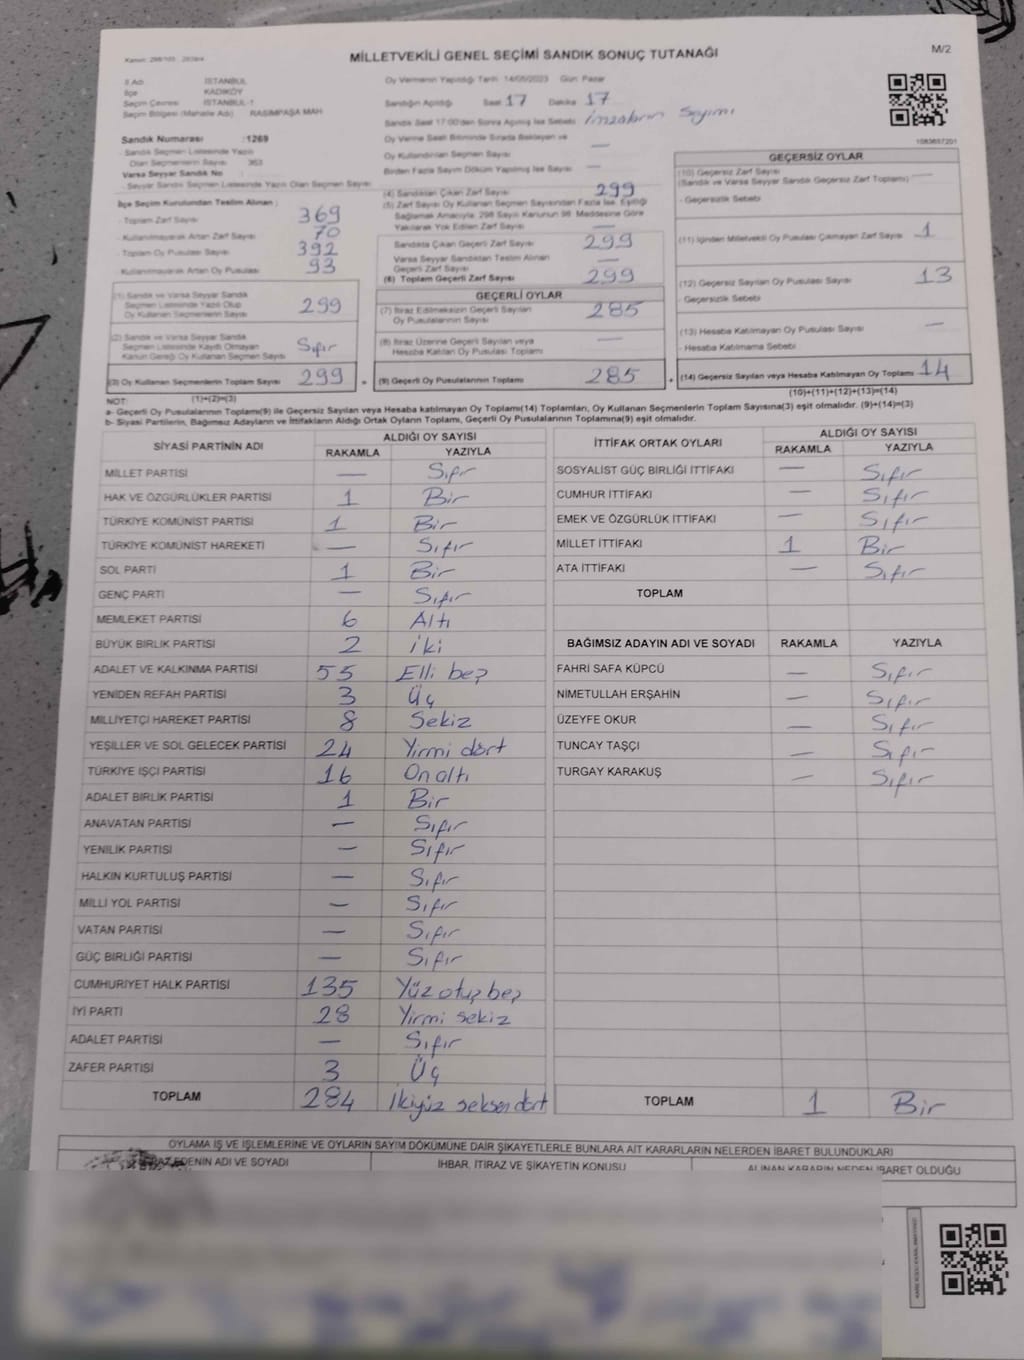 MİLLETVEKİLİ GENEL SEÇİMİ SANDIK SONUÇ TUTANAĞI
M/2
İl Adı İSTANBUL
İlçe KADIKÖY
Seçim Çevresi İSTANBUL-1
Seçim Bölgesi (Mahalle Adı) RASIMPAŞA MAH.
Sandık Numarası :1269
- Sandık Seçmen Listesinde Yazılı
Olan Seçmenlerin Sayısı 363
Varsa Seyyar Sandık No
- Seyyar Sandık Seçmen Listesinde Yazılı Olan Seçmen Sayısı
İlçe Seçim Kurulundan Teslim Alınan ;
- Toplam Zarf Sayısı 369
- Kullanılmayarak Artan Zarf Sayısı 70
- Toplam Oy Pusulası Sayısı 392
- Kullanılmayarak Artan Oy Pusulası 93
(1) Sandık ve Varsa Seyyar Sandık
Seçmen Listesinde Yazılı Olup
Oy Kullanan Seçmenlerin Sayısı 299
(2) Sandık ve Varsa Seyyar Sandık
Seçmen Listesinde Kaydı Olmayan
Kanun Gereği Oy Kullanan Seçmen Sayısı Sıfır
(3) Oy Kullanan Seçmenlerin Toplam Sayısı 299
(1)+(2)=(3)
Oy Vermenin Yapıldığı Tarih 14/05/2023 Gün Pazar
Sandığın Açıldığı Saat 17 Dakika 17
Sandık Saat 17:00'den Sonra Açılmış İse Sebebi İmzaların Sayımı
Oy Verme Saati Bitiminde Sırada Bekleyen ve
Oy Kullandırılan Seçmen Sayısı —
Birden Fazla Sayım Döküm Yapılmış İse Sayısı —
(4) Sandıktan Çıkan Zarf Sayısı 299
(5) Zarf Sayısı Oy Kullanan Seçmen Sayısından Fazla İse, Eşitliği
Sağlamak Amacıyla, 298 Sayılı Kanunun 98. Maddesine Göre
Yakılarak Yok Edilen Zarf Sayısı —
Sandıkta Çıkan Geçerli Zarf Sayısı 299
Varsa Seyyar Sandıktan Teslim Alınan
Geçerli Zarf Sayısı —
(6) Toplam Geçerli Zarf Sayısı 299
GEÇERLİ OYLAR
(7) İtiraz Edilmeksizin Geçerli Sayılan
Oy Pusulalarının Sayısı 285
(8) İtiraz Üzerine Geçerli Sayılan veya
Hesaba Katılan Oy Pusulası Toplamı —
(9) Geçerli Oy Pusulalarının Toplamı 285
1083657201
GEÇERSİZ OYLAR
(10) Geçersiz Zarf Sayısı —
(Sandık ve Varsa Seyyar Sandık Geçersiz Zarf Toplamı)
- Geçersizlik Sebebi
(11) İçinden Milletvekili Oy Pusulası Çıkmayan Zarf Sayısı 1
(12) Geçersiz Sayılan Oy Pusulası Sayısı 13
- Geçersizlik Sebebi
(13) Hesaba Katılmayan Oy Pusulası Sayısı —
- Hesaba Katılmama Sebebi
(14) Geçersiz Sayılan veya Hesaba Katılmayan Oy Toplamı 14
(10)+(11)+(12)+(13)=(14)
NOT:
a- Geçerli Oy Pusulasının Toplamı(9) ile Geçersiz Sayılan veya Hesaba katılmayan Oy Toplamı(14) Toplamları, Oy Kullanan Seçmenlerin Toplam Sayısına(3) eşit olmalıdır. (9)+(14)=(3)
b- Siyasi Partilerin, Bağımsız Adayların ve İttifakların Aldığı Ortak Oyların Toplamı, Geçerli Oy Pusulalarının Toplamına(9) eşit olmalıdır.
SİYASİ PARTİNİN ADI ALDIĞI OY SAYISI
RAKAMLA YAZIYLA
MİLLET PARTİSİ — Sıfır
HAK VE ÖZGÜRLÜKLER PARTİSİ 1 Bir
TÜRKİYE KOMÜNİST PARTİSİ 1 Bir
TÜRKİYE KOMÜNİST HAREKETİ — Sıfır
SOL PARTİ 1 Bir
GENÇ PARTİ — Sıfır
MEMLEKET PARTİSİ 6 Altı
BÜYÜK BİRLİK PARTİSİ 2 İki
ADALET VE KALKINMA PARTİSİ 55 Elli beş
YENİDEN REFAH PARTİSİ 3 Üç
MİLLİYETÇİ HAREKET PARTİSİ 8 Sekiz
YEŞİLLER VE SOL GELECEK PARTİSİ 24 Yirmi dört
TÜRKİYE İŞÇİ PARTİSİ 16 On altı
ADALET BİRLİK PARTİSİ 1 Bir
ANAVATAN PARTİSİ — Sıfır
YENİLİK PARTİSİ — Sıfır
HALKIN KURTULUŞ PARTİSİ — Sıfır
MİLLİ YOL PARTİSİ — Sıfır
VATAN PARTİSİ — Sıfır
GÜÇ BİRLİĞİ PARTİSİ — Sıfır
CUMHURİYET HALK PARTİSİ 135 Yüz otuz beş
İYİ PARTİ 28 Yirmi sekiz
ADALET PARTİSİ — Sıfır
ZAFER PARTİSİ 3 Üç
TOPLAM 284 İkiyüz seksen dört
İTTİFAK ORTAK OYLARI ALDIĞI OY SAYISI
RAKAMLA YAZIYLA
SOSYALİST GÜÇ BİRLİĞİ İTTİFAKI — Sıfır
CUMHUR İTTİFAKI — Sıfır
EMEK VE ÖZGÜRLÜK İTTİFAKI — Sıfır
MİLLET İTTİFAKI 1 Bir
ATA İTTİFAKI — Sıfır
TOPLAM
BAĞIMSIZ ADAYIN ADI VE SOYADI RAKAMLA YAZIYLA
FAHRİ SAFA KÜPCÜ — Sıfır
NİMETULLAH ERŞAHİN — Sıfır
ÜZEYFE OKUR — Sıfır
TUNCAY TAŞÇI — Sıfır
TURGAY KARAKUŞ — Sıfır
TOPLAM 1 Bir
OYLAMA İŞ VE İŞLEMLERİNE VE OYLARIN SAYIM DÖKÜMÜNE DAİR ŞİKAYETLERLE BUNLARA AİT KARARLARIN NELERDEN İBARET BULUNDUKLARI
EDENİN ADI VE SOYADI İHBAR, İTİRAZ VE ŞİKAYETİN KONUSU ALINAN KARARIN NEDEN İBARET OLDUĞU